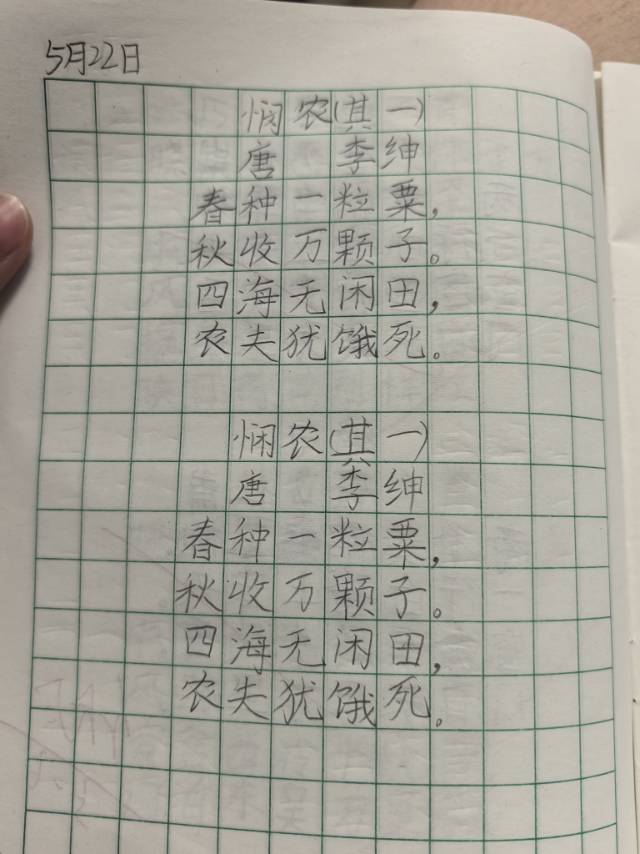 5月22日
悯农(其一)
唐 李绅
春种一粒粟,
秋收万颗子。
四海无闲田,
农夫犹饿死。
悯农(其一)
唐 李绅
春种一粒粟,
秋收万颗子。
四海无闲田,
农夫犹饿死。